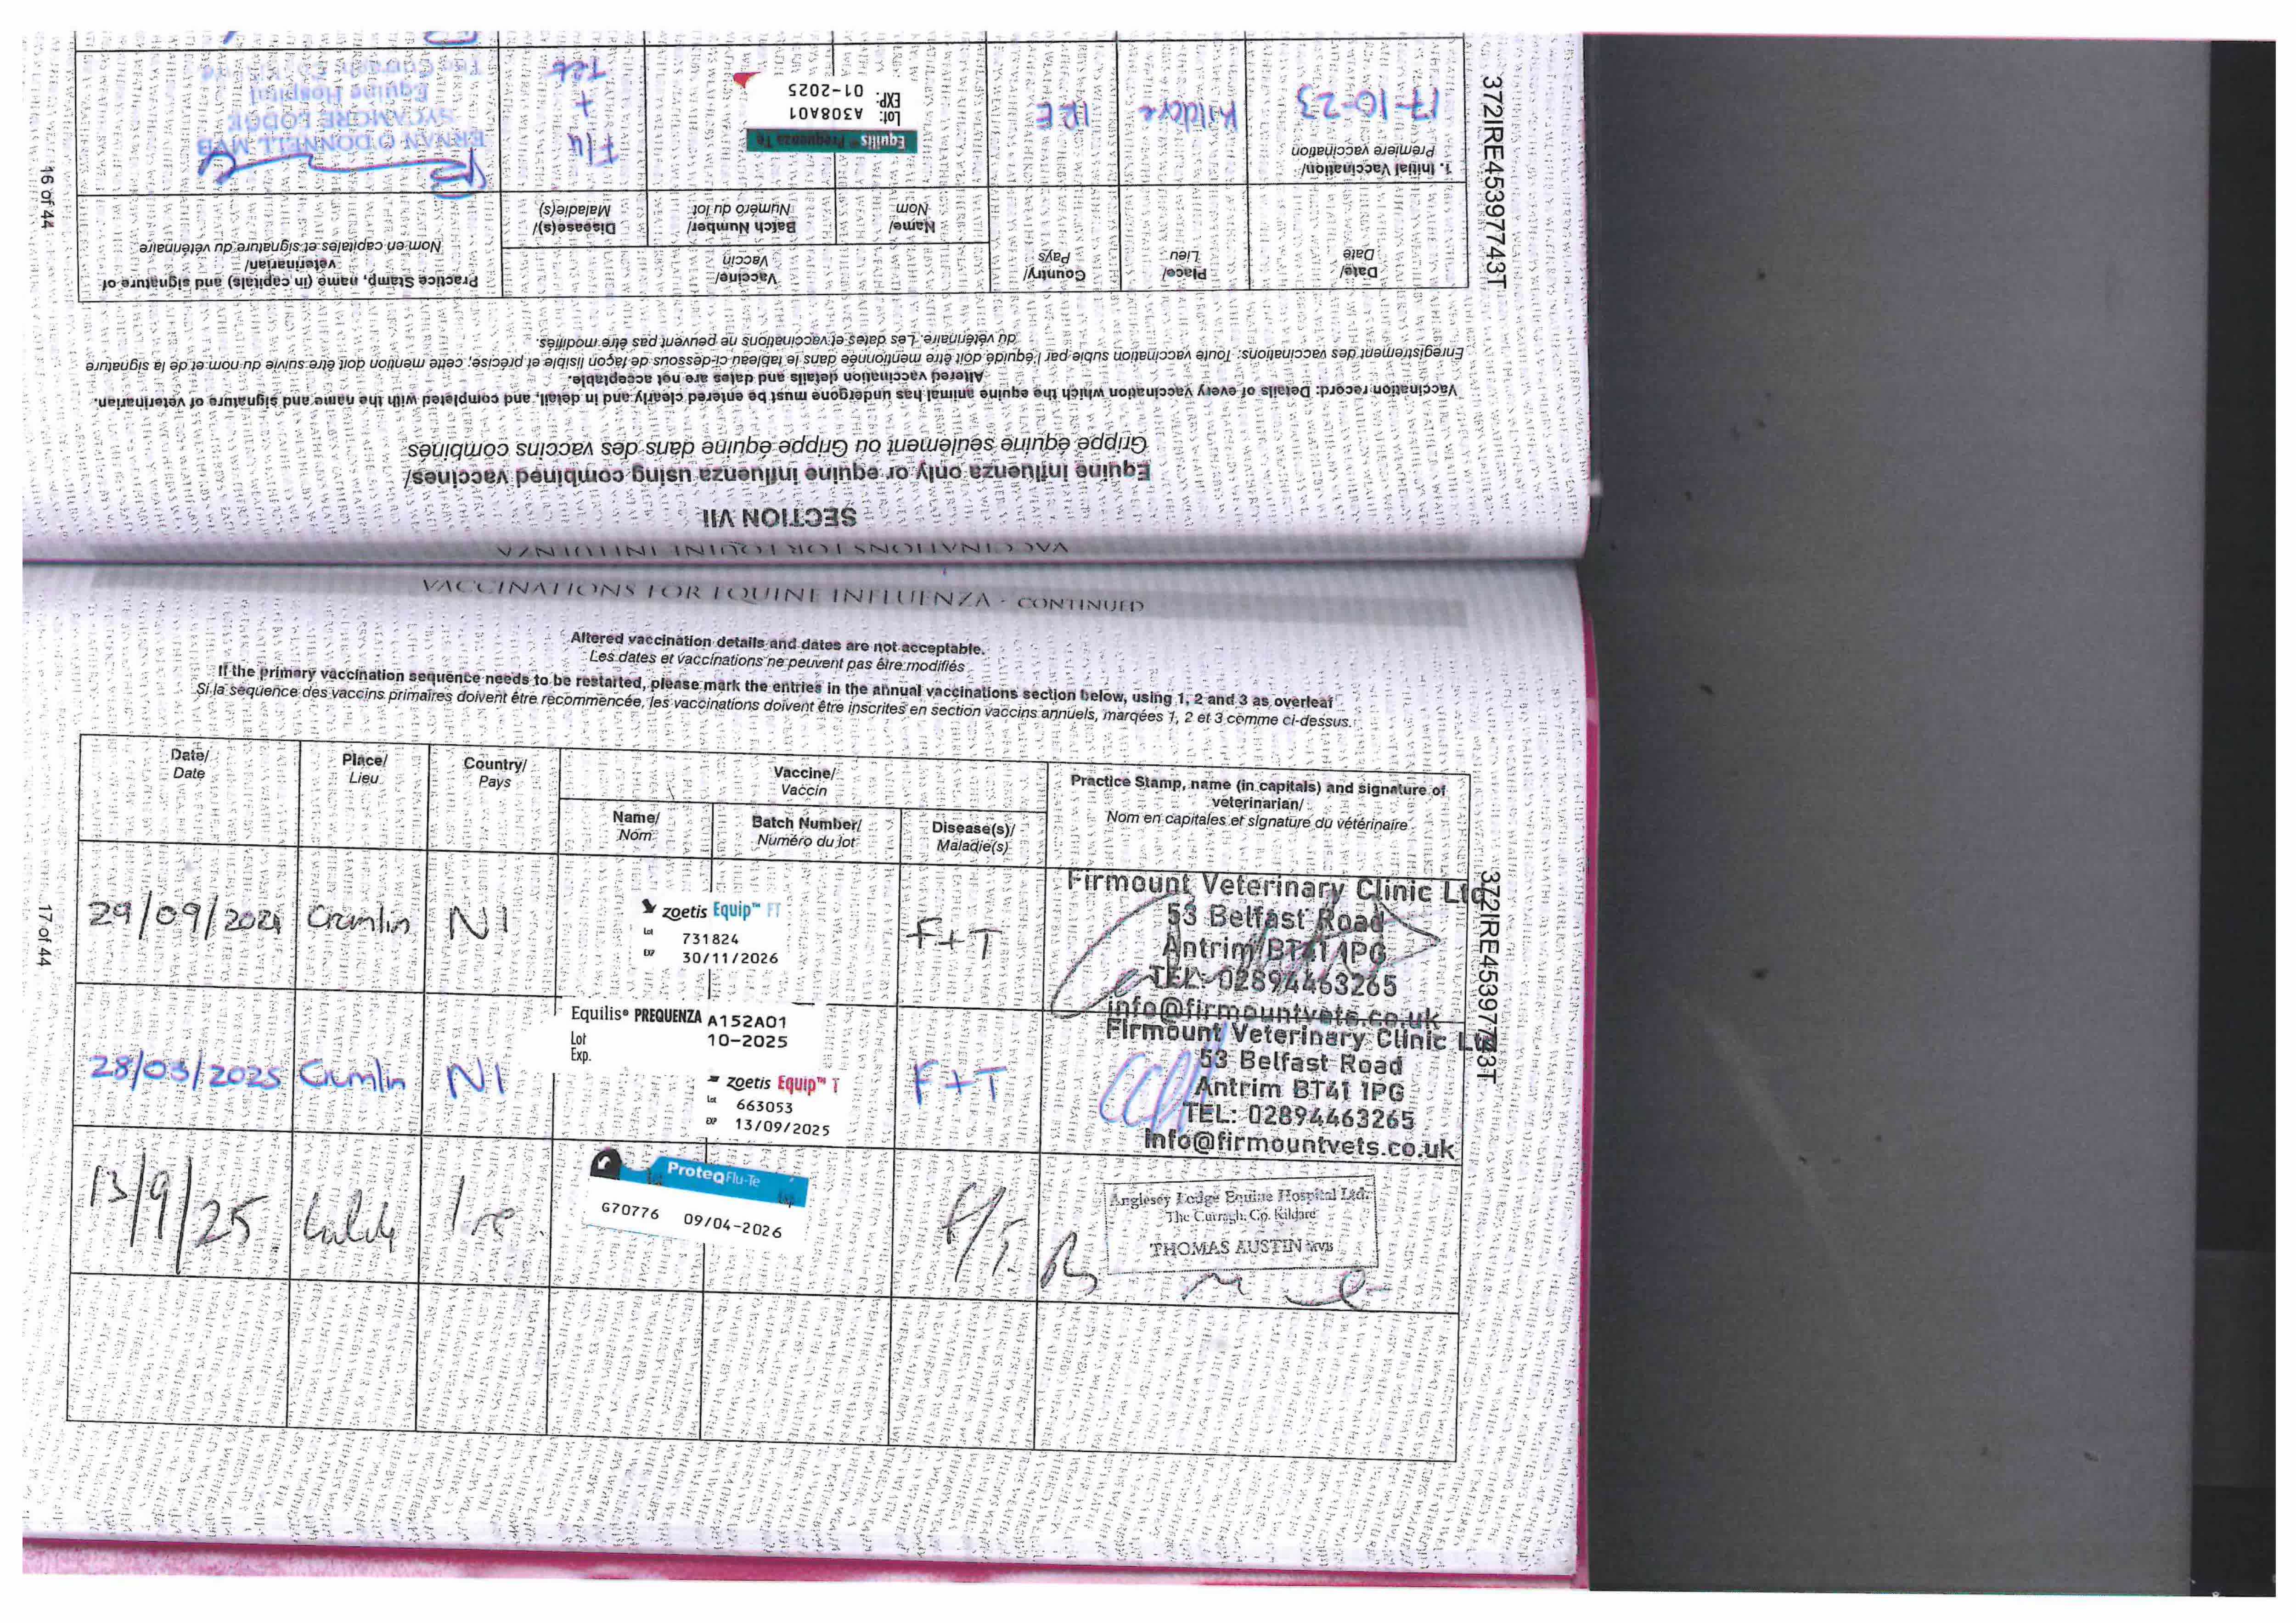 372IRE45397743T
16 of 44
SECTION VII
Equine influenza only or equine influenza using combined vaccines/
Grippe équine seulement ou Grippe équine dans des vaccins combinés
Vaccination record: Details of every vaccination which the equine animal has undergone must be entered clearly and in detail, and completed with the name and signature of veterinarian.
Altered vaccination details and dates are not acceptable.
Enregistrement des vaccinations: Toute vaccination subie par l'équidé doit être mentionnée dans le tableau ci-dessous de façon lisible et précise, cette mention doit être suivie du nom et de la signature
du vétérinaire. Les dates et vaccinations ne peuvent pas être modifiés.
Date/
Date
Place/
Lieu
Country/
Pays
Vaccine/
Vaccin
Name/
Nom
Batch Number/
Numéro du lot
Disease(s)/
Maladie(s)
Practice Stamp, name (in capitals) and signature of
veterinarian/
Nom en capitales et signature du vétérinaire
1. Initial Vaccination/
Première vaccination
17-10-23
Kildare
IRE
Equilis® Prequenza Te
Lot: A308A01
EXP: 01-2025
Flu
+
Tet
ERNAN O DONNELL MVB
SYCAMORE LODGE
Equine Hospital
VACCINATIONS FOR EQUINE INFLUENZA
VACCINATIONS FOR EQUINE INFLUENZA - CONTINUED
Altered vaccination details and dates are not acceptable.
Les dates et vaccinations ne peuvent pas être modifiés
If the primary vaccination sequence needs to be restarted, please mark the entries in the annual vaccinations section below, using 1, 2 and 3 as overleaf
Si la séquence des vaccins primaires doivent être recommencée, les vaccinations doivent être inscrites en section vaccins annuels, marqées 1, 2 et 3 comme ci-dessus.
Date/
Date
Place/
Lieu
Country/
Pays
Vaccine/
Vaccin
Name/
Nom
Batch Number/
Numéro du lot
Disease(s)/
Maladie(s)
Practice Stamp, name (in capitals) and signature of
veterinarian/
Nom en capitales et signature du vétérinaire
29/09/2024 Crumlin NI
zoetis Equip™ FT
Lot 731824
EXP 30/11/2026
F+T
Firmount Veterinary Clinic Ltd
53 Belfast Road
Antrim BT41 1PG
TEL: 02894463265
info@firmountvets.co.uk
28/03/2025 Crumlin NI
Equilis® PREQUENZA A152A01
Lot 10-2025
Exp.
zoetis Equip™ T
Lot 663053
EXP 13/09/2025
F+T
Firmount Veterinary Clinic Ltd
53 Belfast Road
Antrim BT41 1PG
TEL: 02894463265
info@firmountvets.co.uk
13/9/25
Ire
ProteqFlu-Te
G70776 09/04-2026
F/T.
Anglesey Lodge Equine Hospital Ltd.
The Curragh, Co. Kildare
THOMAS AUSTIN MVB
372IRE45397743T
17 of 44